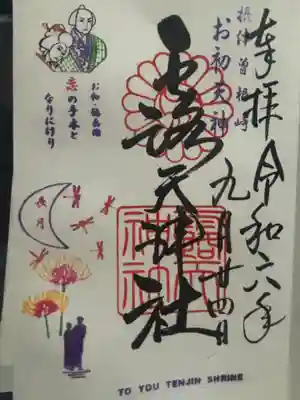 奉拝 令和六年
九月廿四日
摂津曽根崎
お初天神
露天神社
お初・徳兵衛
恋の手本と
なりにけり
長月
露天神社
TO YOU TENJIN SHRINE